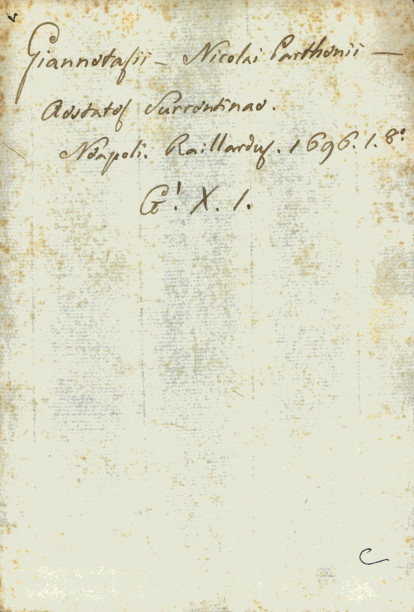 Giannetasii - Nicolai Parthenii -
Aestates Surrentinae.
Neapoli. Raillardus. 1696. 1. 8º
G'. X. 1.
C